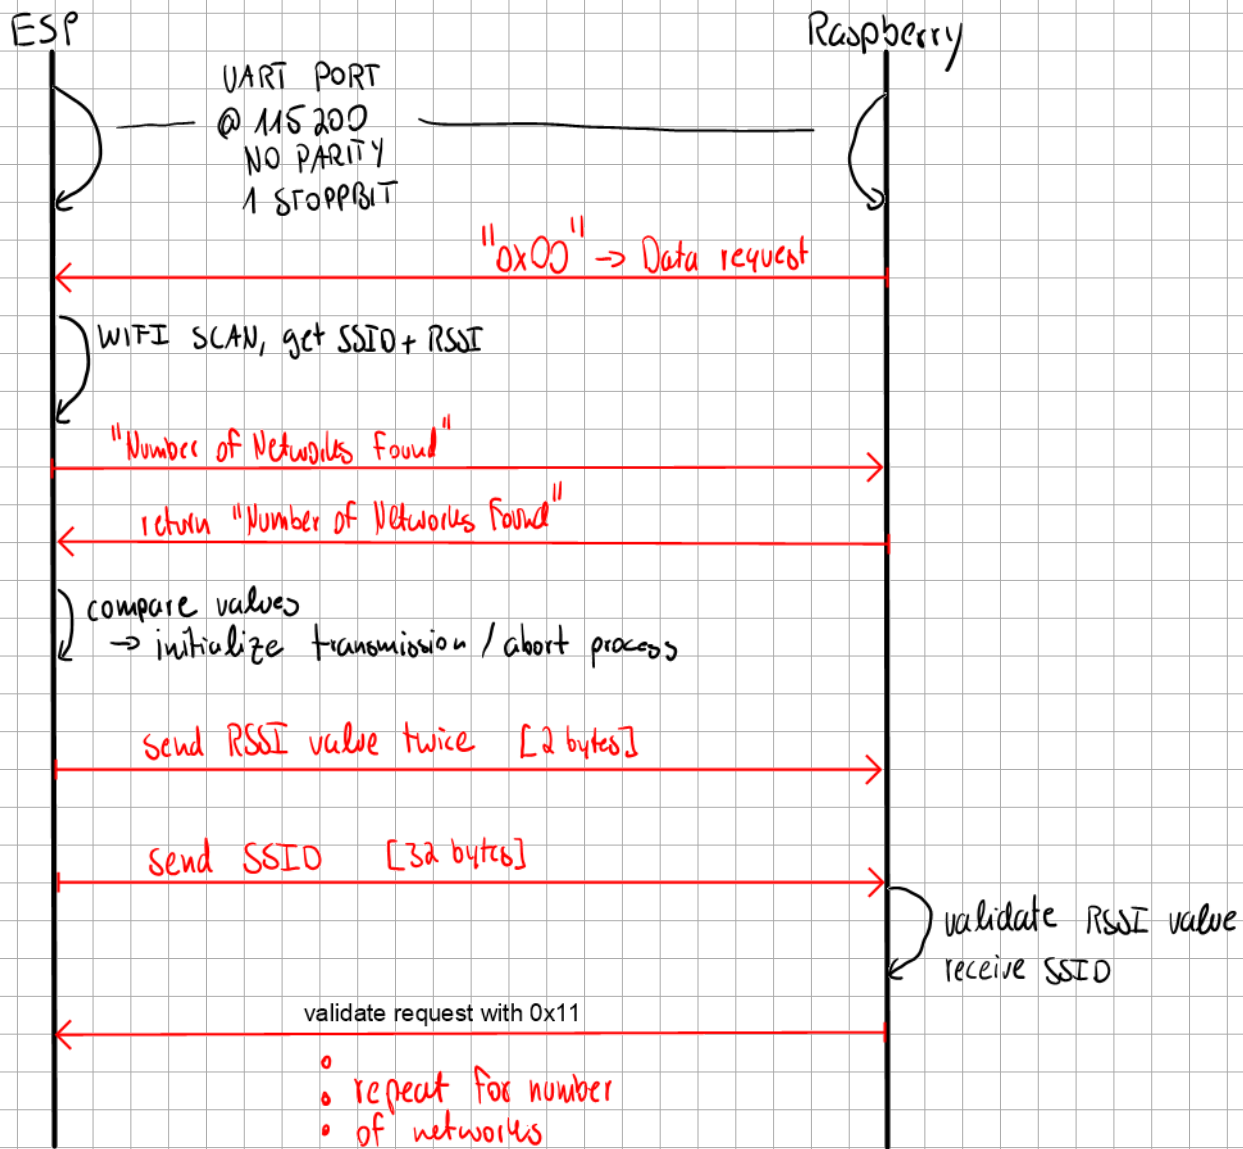 ESP
Raspberry
UART PORT
@ 115200
NO PARITY
1 STOPPBIT
"0x00" → Data request
WIFI SCAN, get SSID + RSSI
"Number of Networks Found"
return "Number of Networks Found"
compare values
→ initialize transmission / abort process
send RSSI value twice [2 bytes]
send SSID [32 bytes]
validate RSSI value
receive SSID
validate request with 0x11
repeat for number
of networks